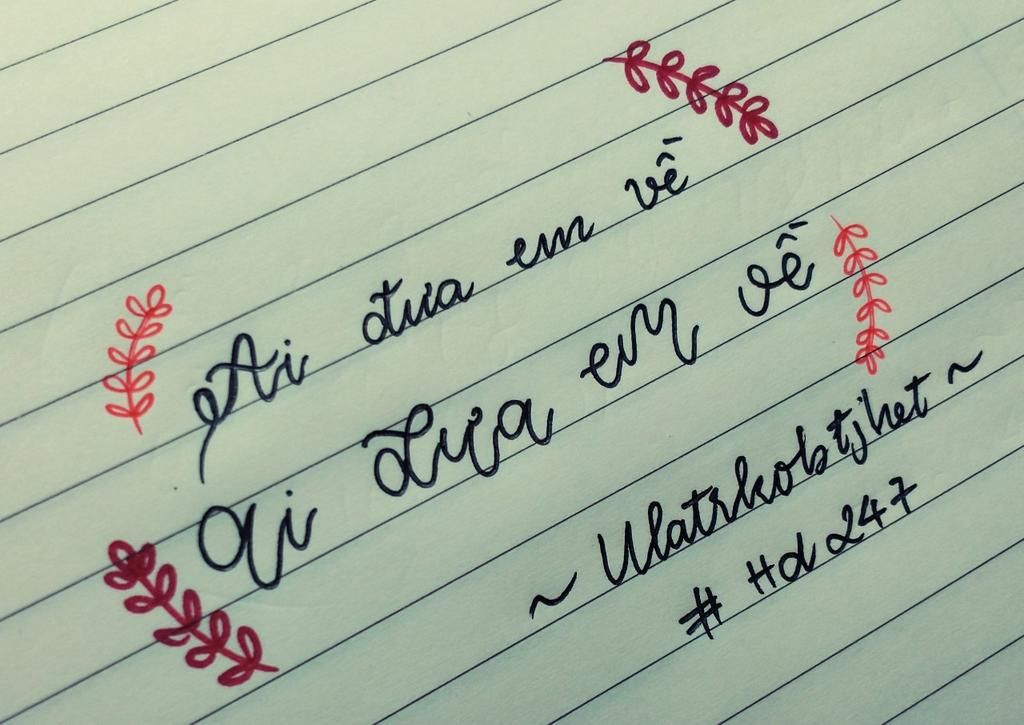 Ai đưa em về
ai đưa em về
~ Ulatrkobtjhet ~
# Hd 247